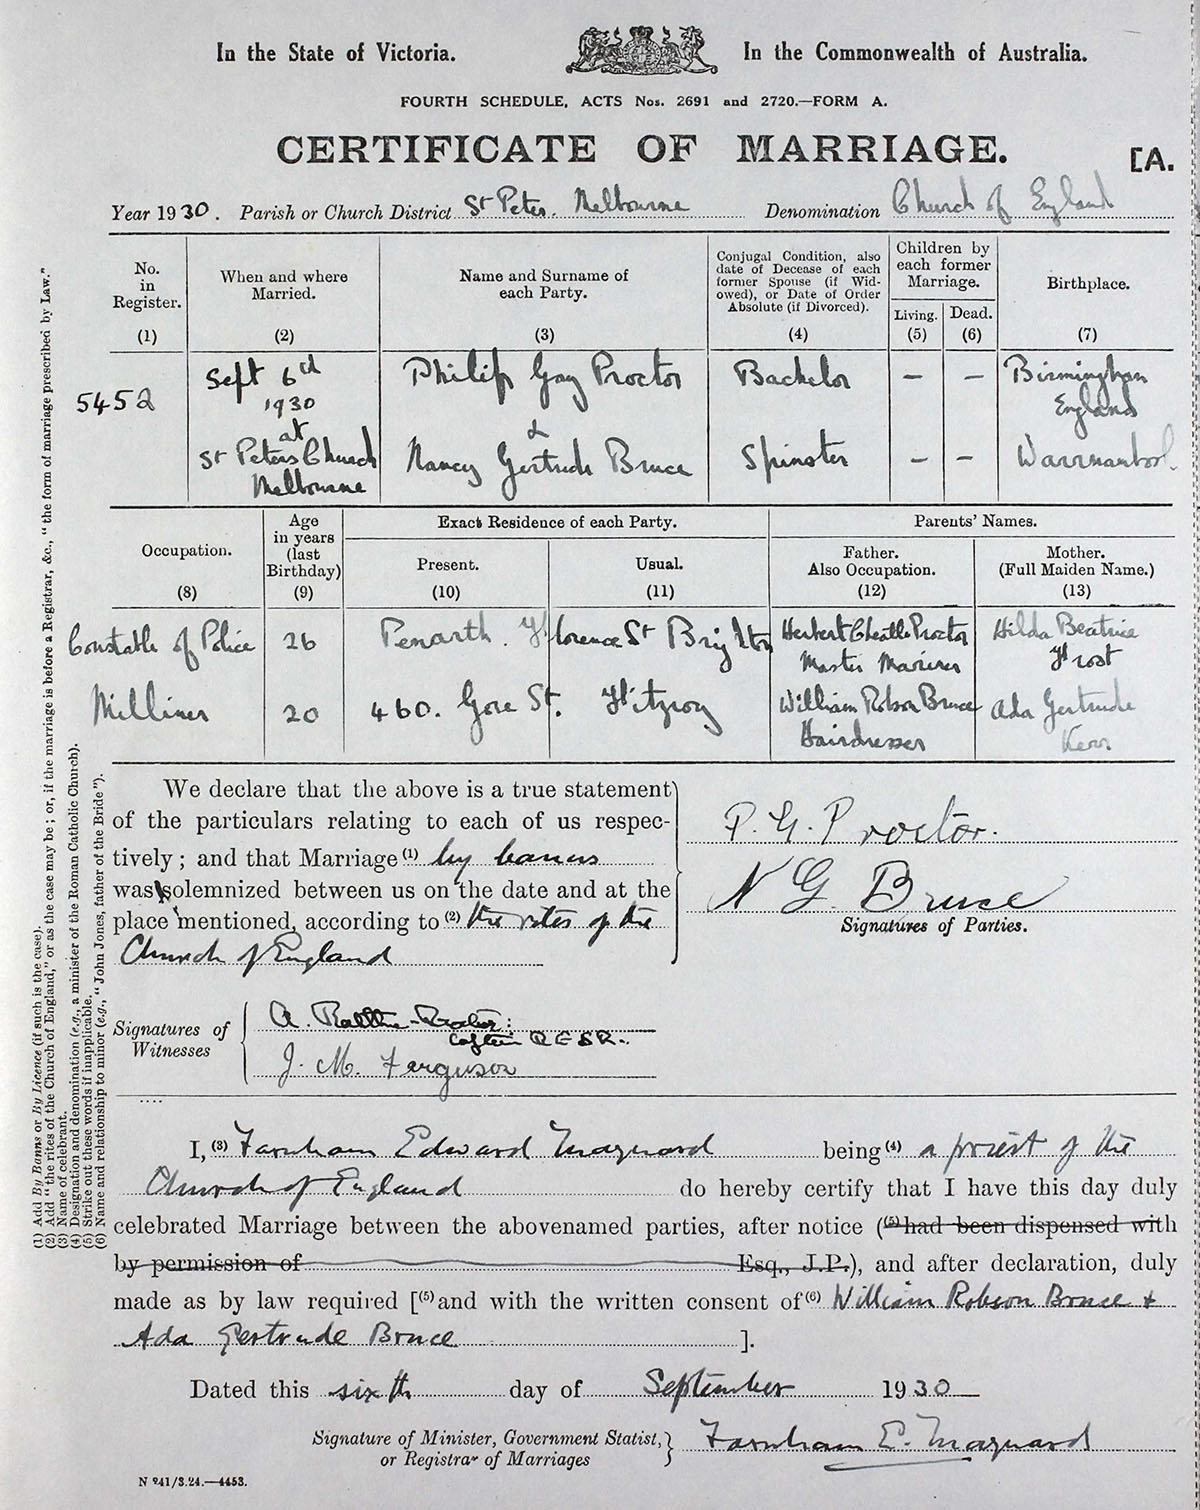 In the State of Victoria. In the Commonwealth of Australia.
FOURTH SCHEDULE, ACTS Nos. 2691 and 2720.—FORM A.
CERTIFICATE OF MARRIAGE. [A.
Year 1930. Parish or Church District St Peters. Melbourne Denomination Church of England
No. in Register. (1)
When and where Married. (2)
Name and Surname of each Party. (3)
Conjugal Condition, also date of Decease of each former Spouse (if Widowed), or Date of Order Absolute (if Divorced). (4)
Children by each former Marriage.
Living. (5)
Dead. (6)
Birthplace. (7)
5452
Sept 6th
1930
at
St Peters Church
Melbourne
Philip Gay Proctor
&
Nancy Gertrude Bruce
Bachelor
Spinster
— —
— —
Birmingham
England
Warrnambool
Occupation. (8)
Age in years (last Birthday) (9)
Exact Residence of each Party.
Present. (10)
Usual. (11)
Parents' Names.
Father. Also Occupation. (12)
Mother. (Full Maiden Name.) (13)
Constable of Police 26 Penarth. Florence St Brighton
Herbert Cheatle Proctor
Master Mariner
Hilda Beatrice
Frost
Milliner 20 460. Gore St. Fitzroy
William Robson Bruce
Hairdresser
Ada Gertrude
Kerr
We declare that the above is a true statement
of the particulars relating to each of us respec-
tively; and that Marriage (1) by banns
was solemnized between us on the date and at the
place mentioned, according to (2) the rites of the
Church of England
P. G. Proctor.
N G. Bruce
Signatures of Parties.
Signatures of Witnesses
A.
Captain
J. M. Ferguson
I, (3) Farnham Edward Maynard being (4) a priest of the
Church of England do hereby certify that I have this day duly
celebrated Marriage between the abovenamed parties, after notice ((5) had been dispensed with
by permission of Esq., J.P.), and after declaration, duly
made as by law required [(5) and with the written consent of (6) William Robson Bruce +
Ada Gertrude Bruce ].
Dated this sixth day of September 1930
Signature of Minister, Government Statist,
or Registrar of Marriages
Farnham E. Maynard
N 241/3.24.—4453.
(1) Add By Banns or By Licence (if such is the case).
(2) Add "the rites of the Church of England," or as the case may be; or, if the marriage is before a Registrar, &c., "the form of marriage prescribed by Law."
(3) Name of celebrant.
(4) Designation and denomination (e.g., a minister of the Roman Catholic Church).
(5) Strike out these words if inapplicable.
(6) Name and relationship to minor (e.g., "John Jones, father of the Bride").